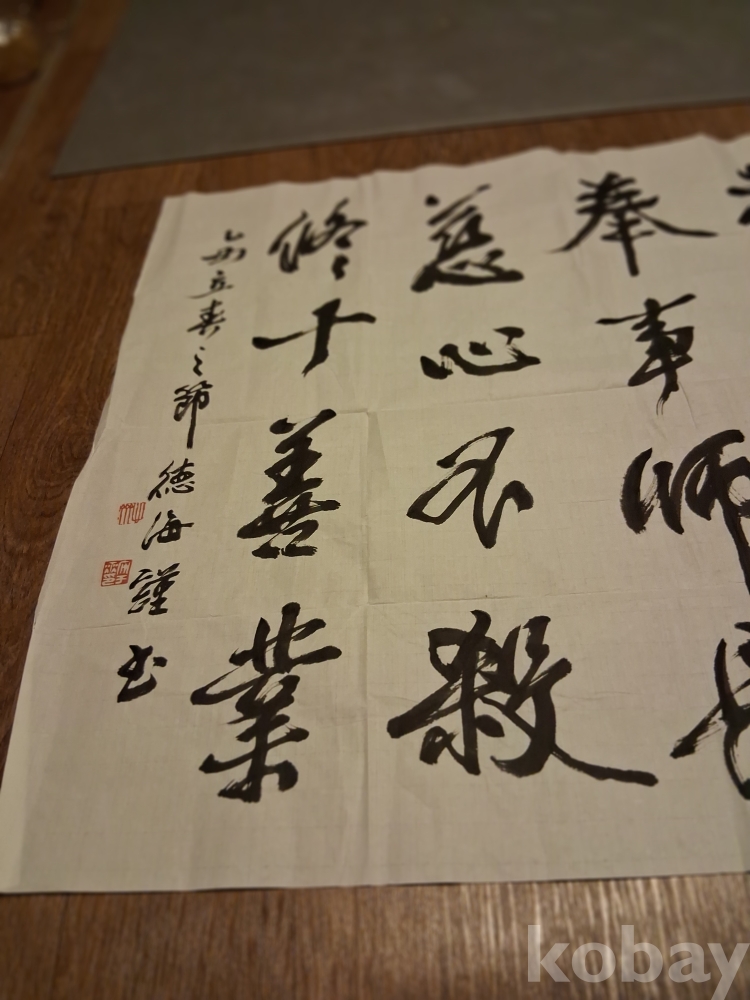 奉事師長
慈心不殺
修十善業
乙酉立春之節 德海謹書
kobay